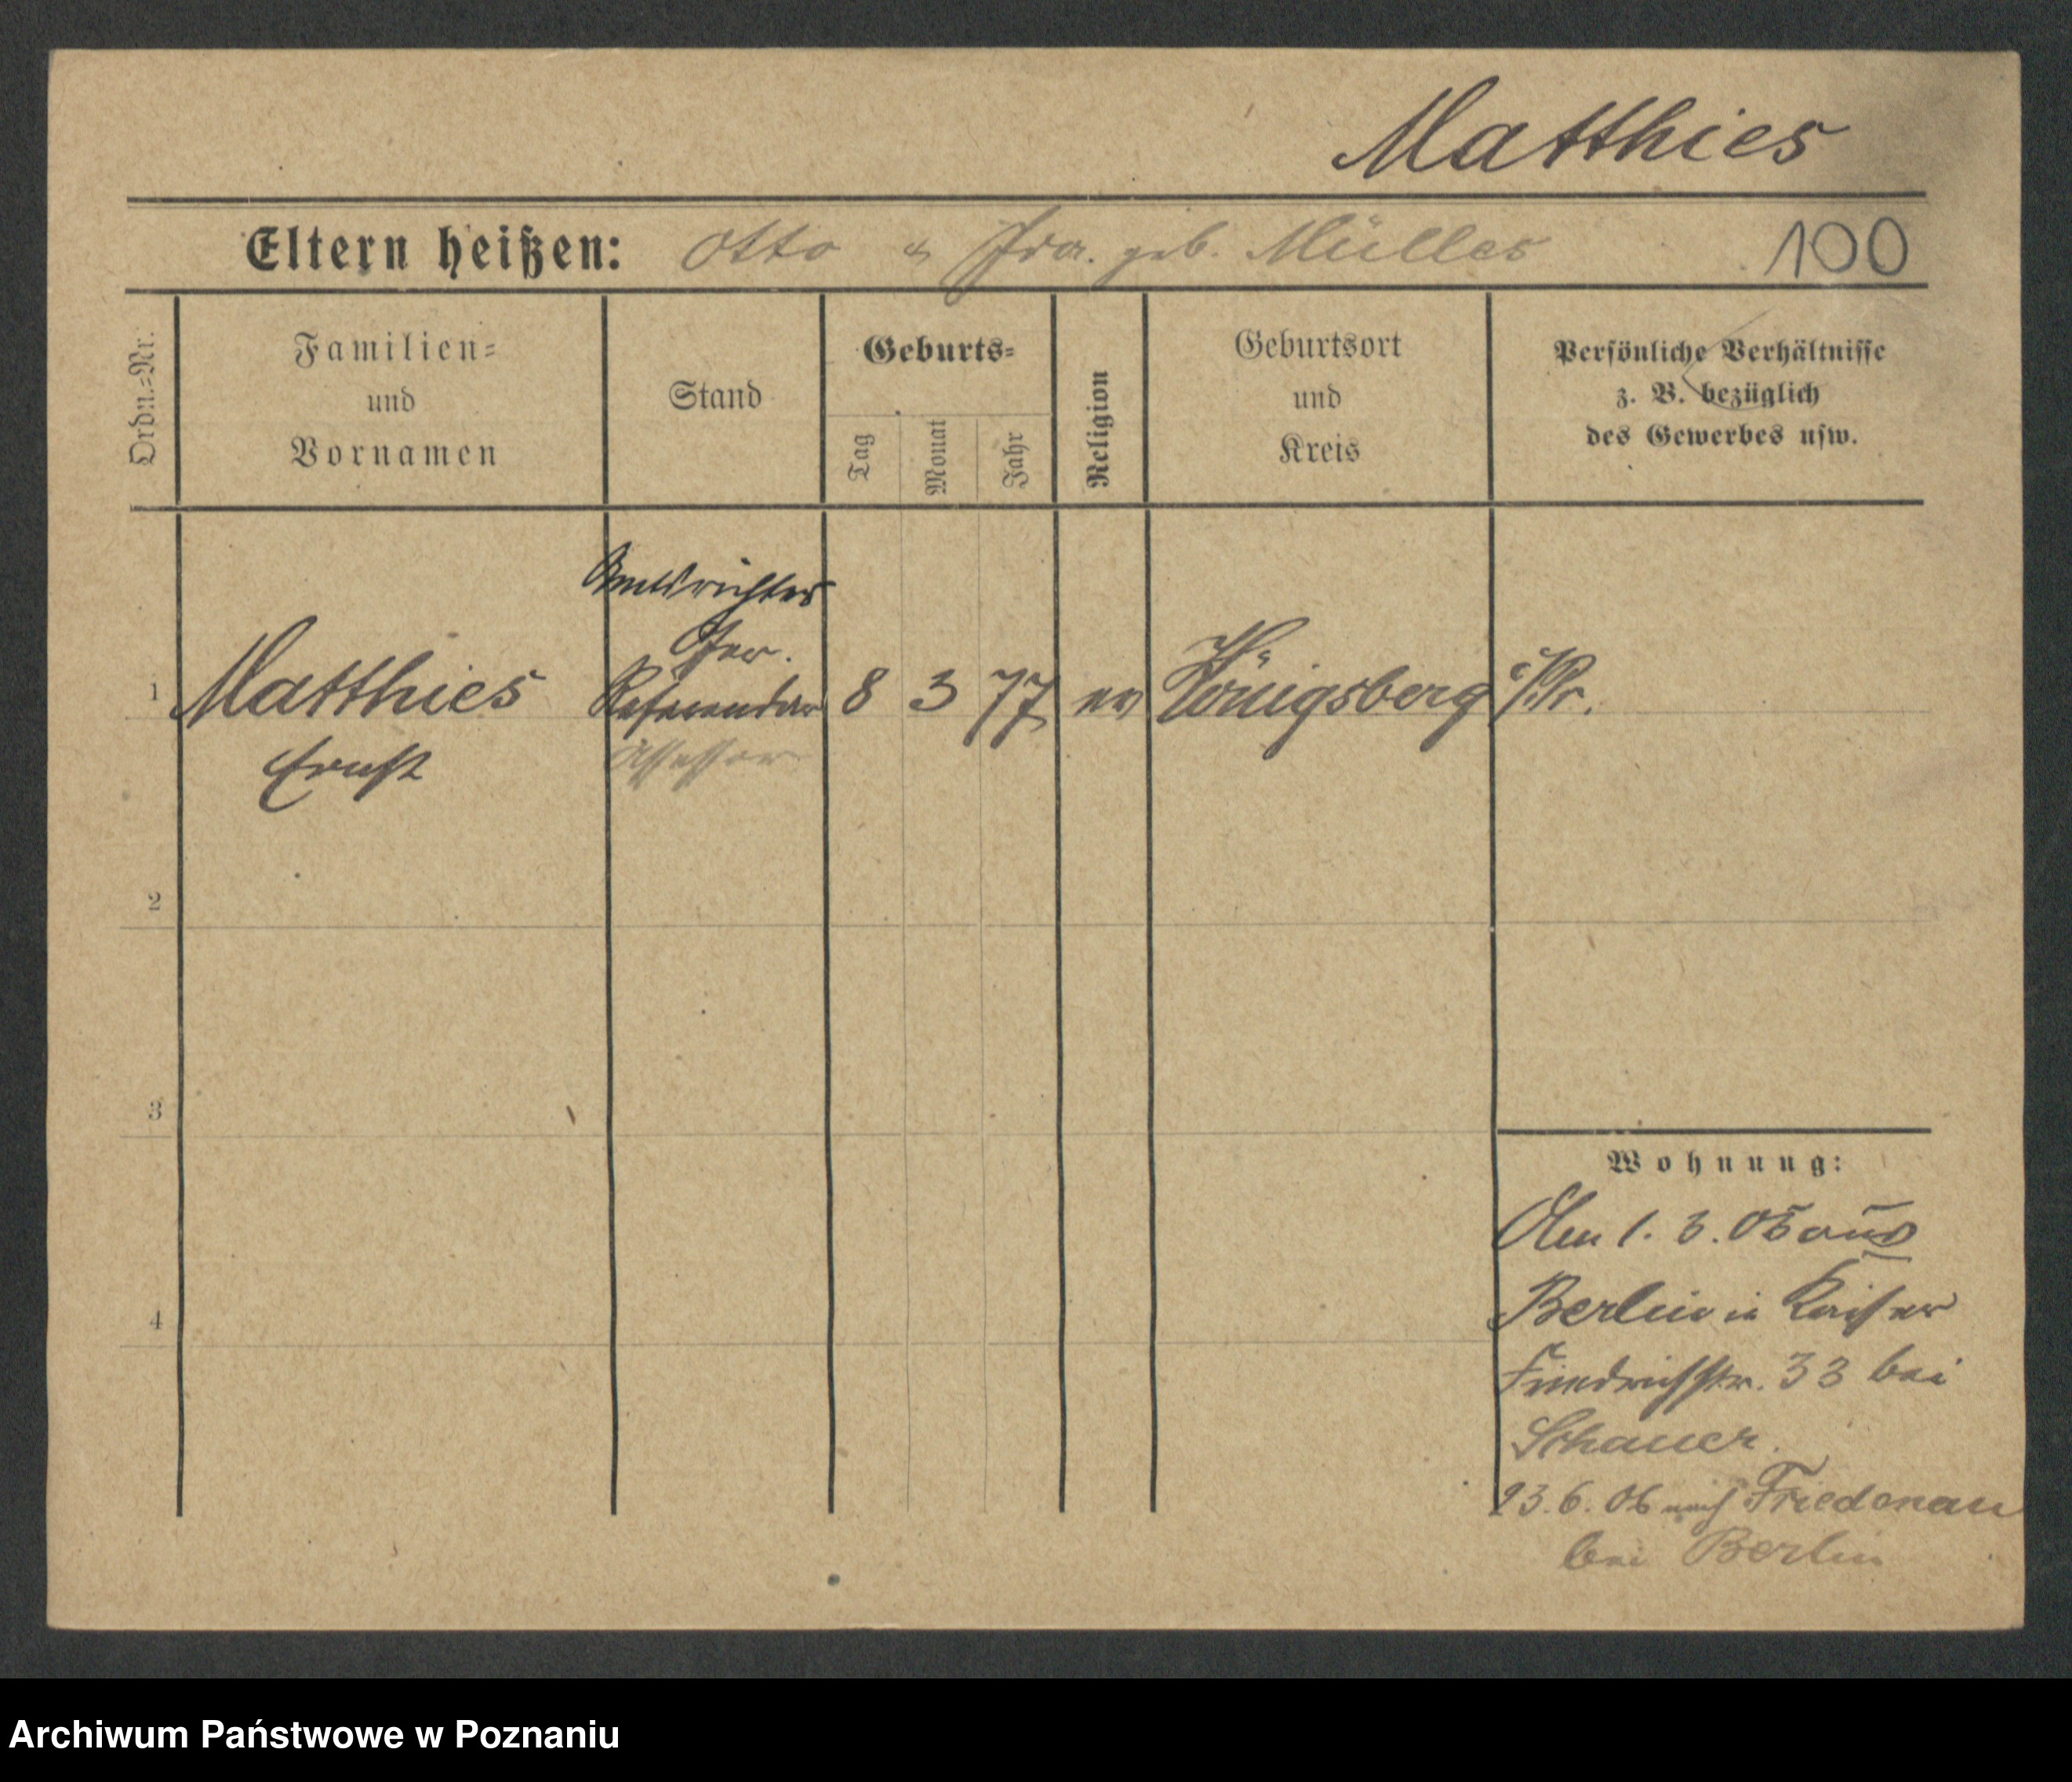 Matthies
Eltern heißen: Otto u geb. Müller 100
Ordn.-Nr.
Familien-
und
Vornamen
Stand
Geburts-
Tag
Monat
Jahr
Religion
Geburtsort
und
Kreis
Persönliche Verhältnisse
z. B. bezüglich
des Gewerbes usw.
Amtsrichter
1 Matthies Referendar 8 3 77 ev Königsberg i/Pr.
Ernst Assessor
2
3
4
Wohnung:
1. 3. 06 aus
Berlin in Kaiser
Friedrichstr. 33 bei
Schauer.
23. 6. 06 nach Friedenau
bei Berlin
Archiwum Państwowe w Poznaniu